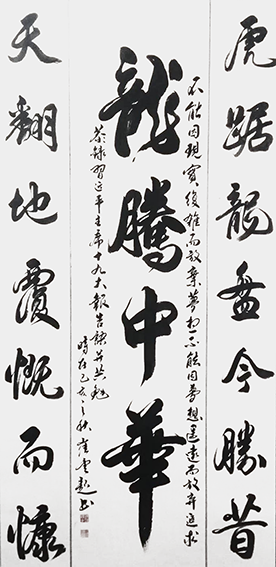 虎踞龍盤今勝昔
不能因現實復雜而放棄夢想不能因夢想遙遠而放弃追求
龍騰中華
恭錄習近平主席十九大報告并共勉
時在己亥之秋崔書
天翻地覆慨而慷